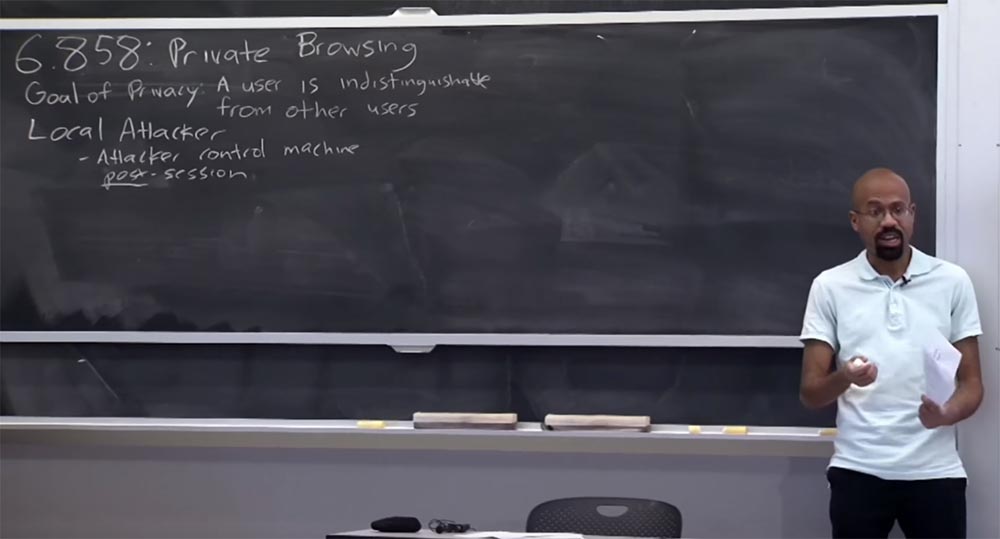 6.858: Private Browsing
Goal of Privacy: A user is indistinguishable
from other users
Local Attacker
- Attacker control machine
post-session